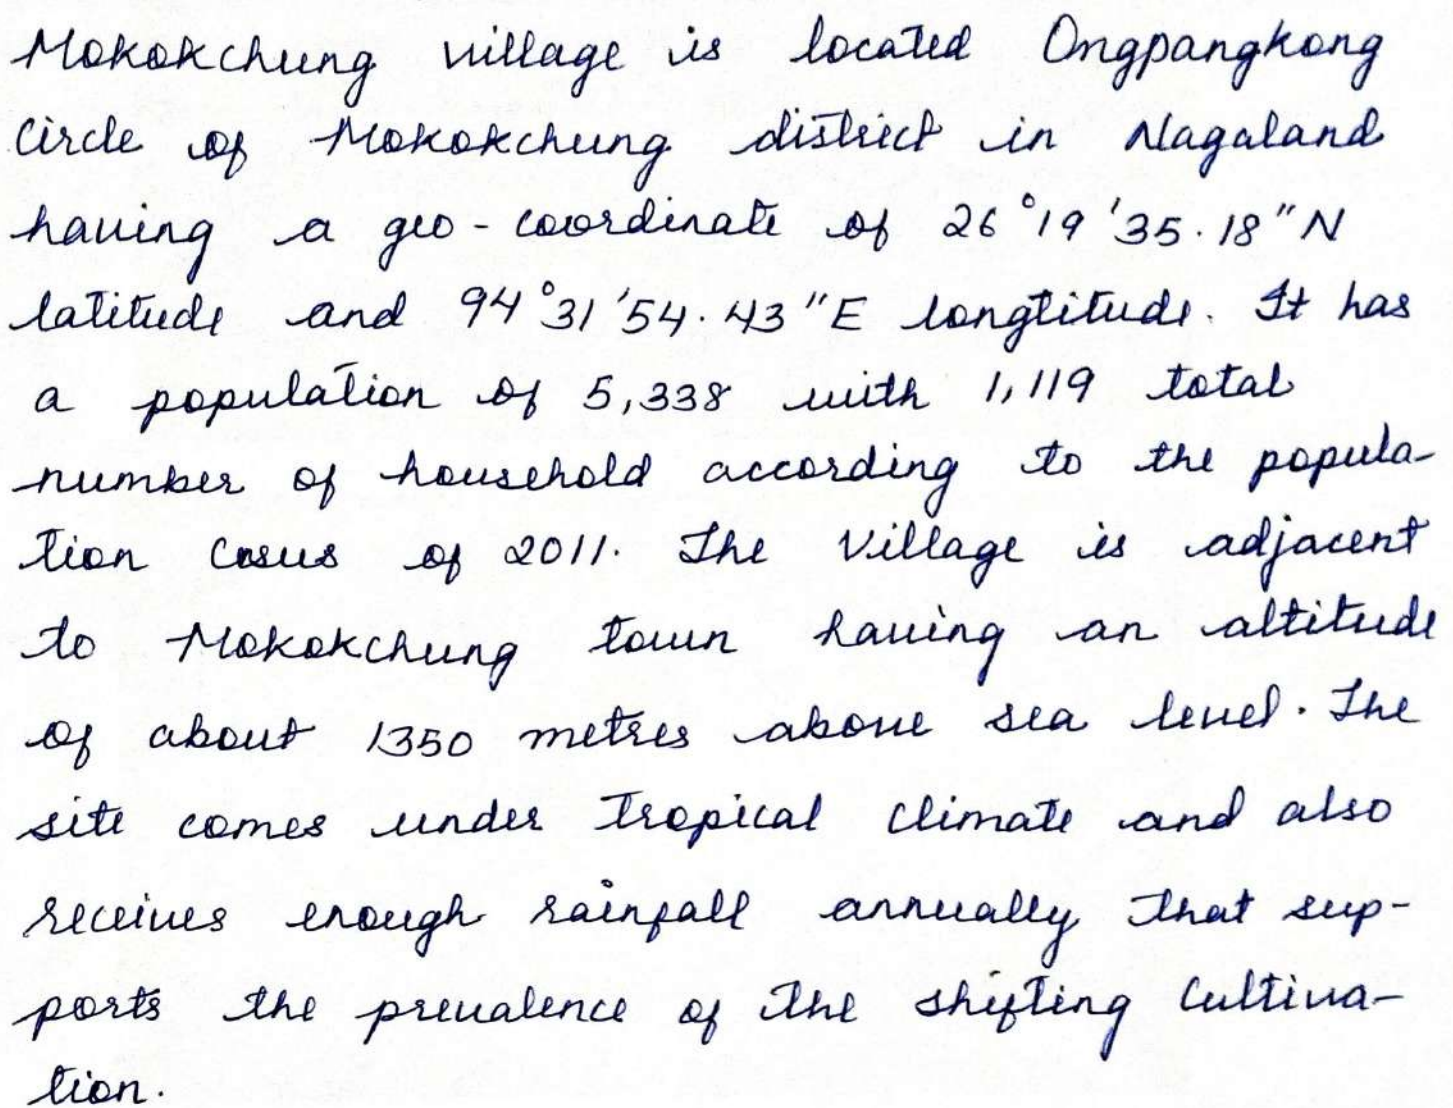 Mokokchung village is located Ongpangkong
Circle of Mokokchung district in Nagaland
having a geo-coordinate of 26°19'35.18"N
latitude and 94°31'54.43"E longtitude. It has
a population of 5,338 with 1,119 total
number of household according to the popula-
tion cesus of 2011. The Village is adjacent
to Mokokchung town having an altitude
of about 1350 metres above sea level. The
site comes under Tropical Climate and also
receives enough rainfall annually that sup-
ports the prevalence of the shifting Cultiva-
tion.